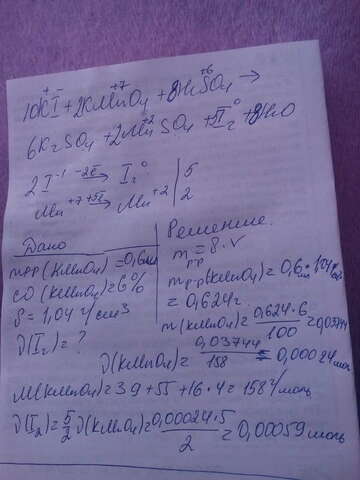 10KI + 2KMnO₄ + 8H₂SO₄ →
6K₂SO₄ + 2MnSO₄ + 5I₂⁰ + 8H₂O
2I⁻¹ -2e̅→ I₂⁰ | 5
Mn⁺⁷ +5e̅→ Mn⁺² | 2
Дано
mрр(KMnO₄) = 0,6мл
ω(KMnO₄) = 6%
ρ = 1,04 г/см3
ν(I₂) = ?
Решение.
mр-р = ρ · V
mр-р(KMnO₄) = 0,6 · 1,04
= 0,624г.
m(KMnO₄) = 0,624·6/100 = 0,03744
ν(KMnO₄) = 0,03744/158 = 0,00024моль
M(KMnO₄) = 39 + 55 + 16·4 = 158 г/моль
ν(I₂) = 5/2 ν(KMnO₄) = 0,00024·5/2 = 0,00059моль